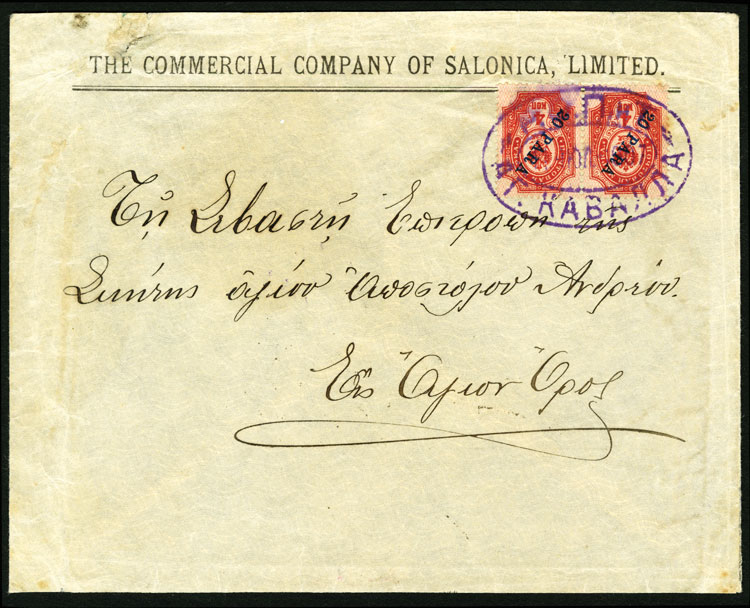 THE COMMERCIAL COMPANY OF SALONICA, LIMITED.
4 КОП 4 КОП
20 PARA 20 PARA
КАВАЛЛА
Τῇ Σεβαστῇ Ἐπιτροπῇ τῆς
Σκήτης ἁγίου Ἀποστόλου Ἀνδρέου.
Εἰς Ἅγιον Ὄρος